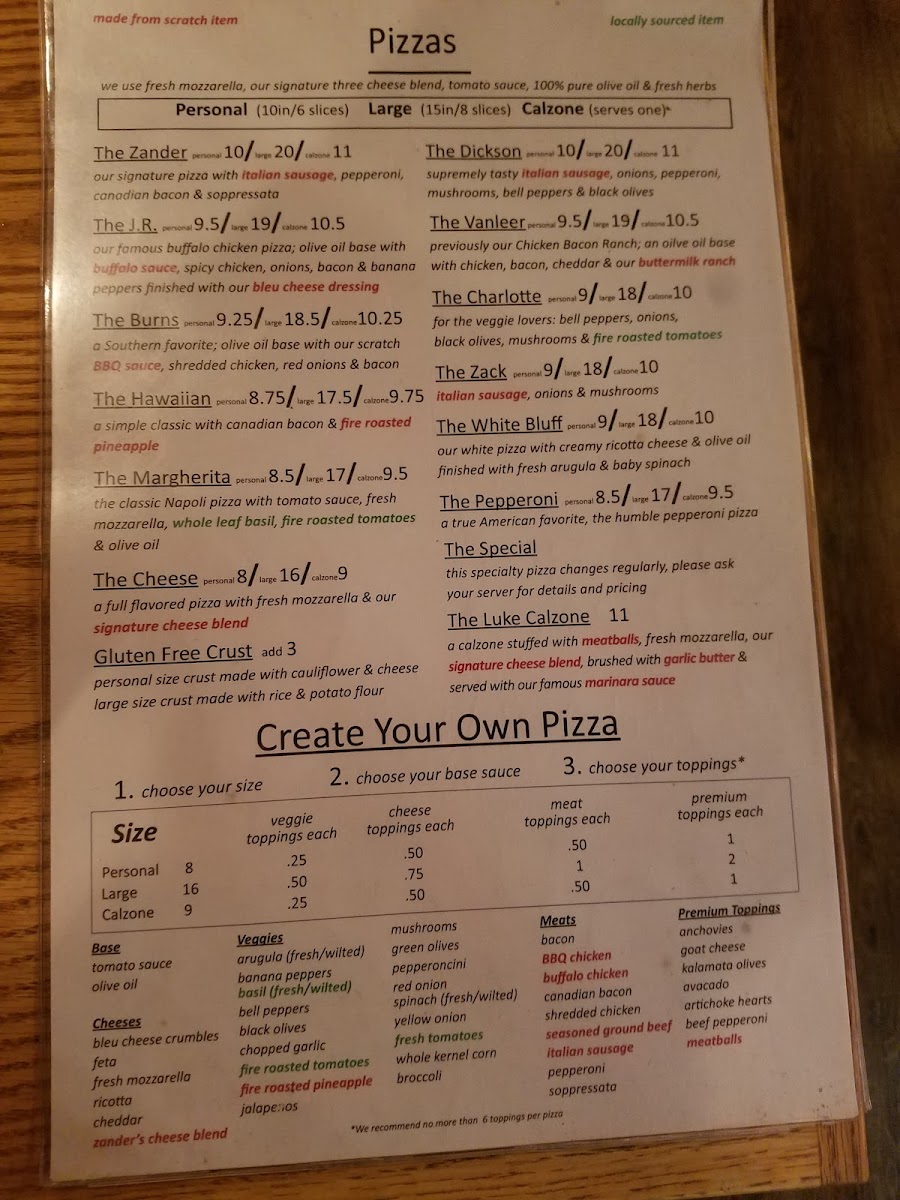 made from scratch item
locally sourced item
Pizzas
we use fresh mozzarella, our signature three cheese blend, tomato sauce, 100% pure olive oil & fresh herbs
Personal (10in/6 slices) Large (15in/8 slices) Calzone (serves one)*
The Zander personal 10/ large 20/ calzone 11
our signature pizza with italian sausage, pepperoni,
canadian bacon & soppressata
The J.R. personal 9.5/ large 19/ calzone 10.5
our famous buffalo chicken pizza; olive oil base with
buffalo sauce, spicy chicken, onions, bacon & banana
peppers finished with our bleu cheese dressing
The Burns personal 9.25/ large 18.5/ calzone 10.25
a Southern favorite; olive oil base with our scratch
BBQ sauce, shredded chicken, red onions & bacon
The Hawaiian personal 8.75/ large 17.5/ calzone 9.75
a simple classic with canadian bacon & fire roasted
pineapple
The Margherita personal 8.5/ large 17/ calzone 9.5
the classic Napoli pizza with tomato sauce, fresh
mozzarella, whole leaf basil, fire roasted tomatoes
& olive oil
The Cheese personal 8/ large 16/ calzone 9
a full flavored pizza with fresh mozzarella & our
signature cheese blend
Gluten Free Crust add 3
personal size crust made with cauliflower & cheese
large size crust made with rice & potato flour
The Dickson personal 10/ large 20/ calzone 11
supremely tasty italian sausage, onions, pepperoni,
mushrooms, bell peppers & black olives
The Vanleer personal 9.5/ large 19/ calzone 10.5
previously our Chicken Bacon Ranch; an oilve oil base
with chicken, bacon, cheddar & our buttermilk ranch
The Charlotte personal 9/ large 18/ calzone 10
for the veggie lovers: bell peppers, onions,
black olives, mushrooms & fire roasted tomatoes
The Zack personal 9/ large 18/ calzone 10
italian sausage, onions & mushrooms
The White Bluff personal 9/ large 18/ calzone 10
our white pizza with creamy ricotta cheese & olive oil
finished with fresh arugula & baby spinach
The Pepperoni personal 8.5/ large 17/ calzone 9.5
a true American favorite, the humble pepperoni pizza
The Special
this specialty pizza changes regularly, please ask
your server for details and pricing
The Luke Calzone 11
a calzone stuffed with meatballs, fresh mozzarella, our
signature cheese blend, brushed with garlic butter &
served with our famous marinara sauce
Create Your Own Pizza
1. choose your size 2. choose your base sauce 3. choose your toppings*
Size veggie toppings each cheese toppings each meat toppings each premium toppings each
Personal 8 .25 .50 .50 1
Large 16 .50 .75 1 2
Calzone 9 .25 .50 .50 1
Base
tomato sauce
olive oil
Cheeses
bleu cheese crumbles
feta
fresh mozzarella
ricotta
cheddar
zander's cheese blend
Veggies
arugula (fresh/wilted)
banana peppers
basil (fresh/wilted)
bell peppers
black olives
chopped garlic
fire roasted tomatoes
fire roasted pineapple
jalapenos
mushrooms
green olives
pepperoncini
red onion
spinach (fresh/wilted)
yellow onion
fresh tomatoes
whole kernel corn
broccoli
Meats
bacon
BBQ chicken
buffalo chicken
canadian bacon
shredded chicken
seasoned ground beef
italian sausage
pepperoni
soppressata
Premium Toppings
anchovies
goat cheese
kalamata olives
avacado
artichoke hearts
beef pepperoni
meatballs
*We recommend no more than 6 toppings per pizza